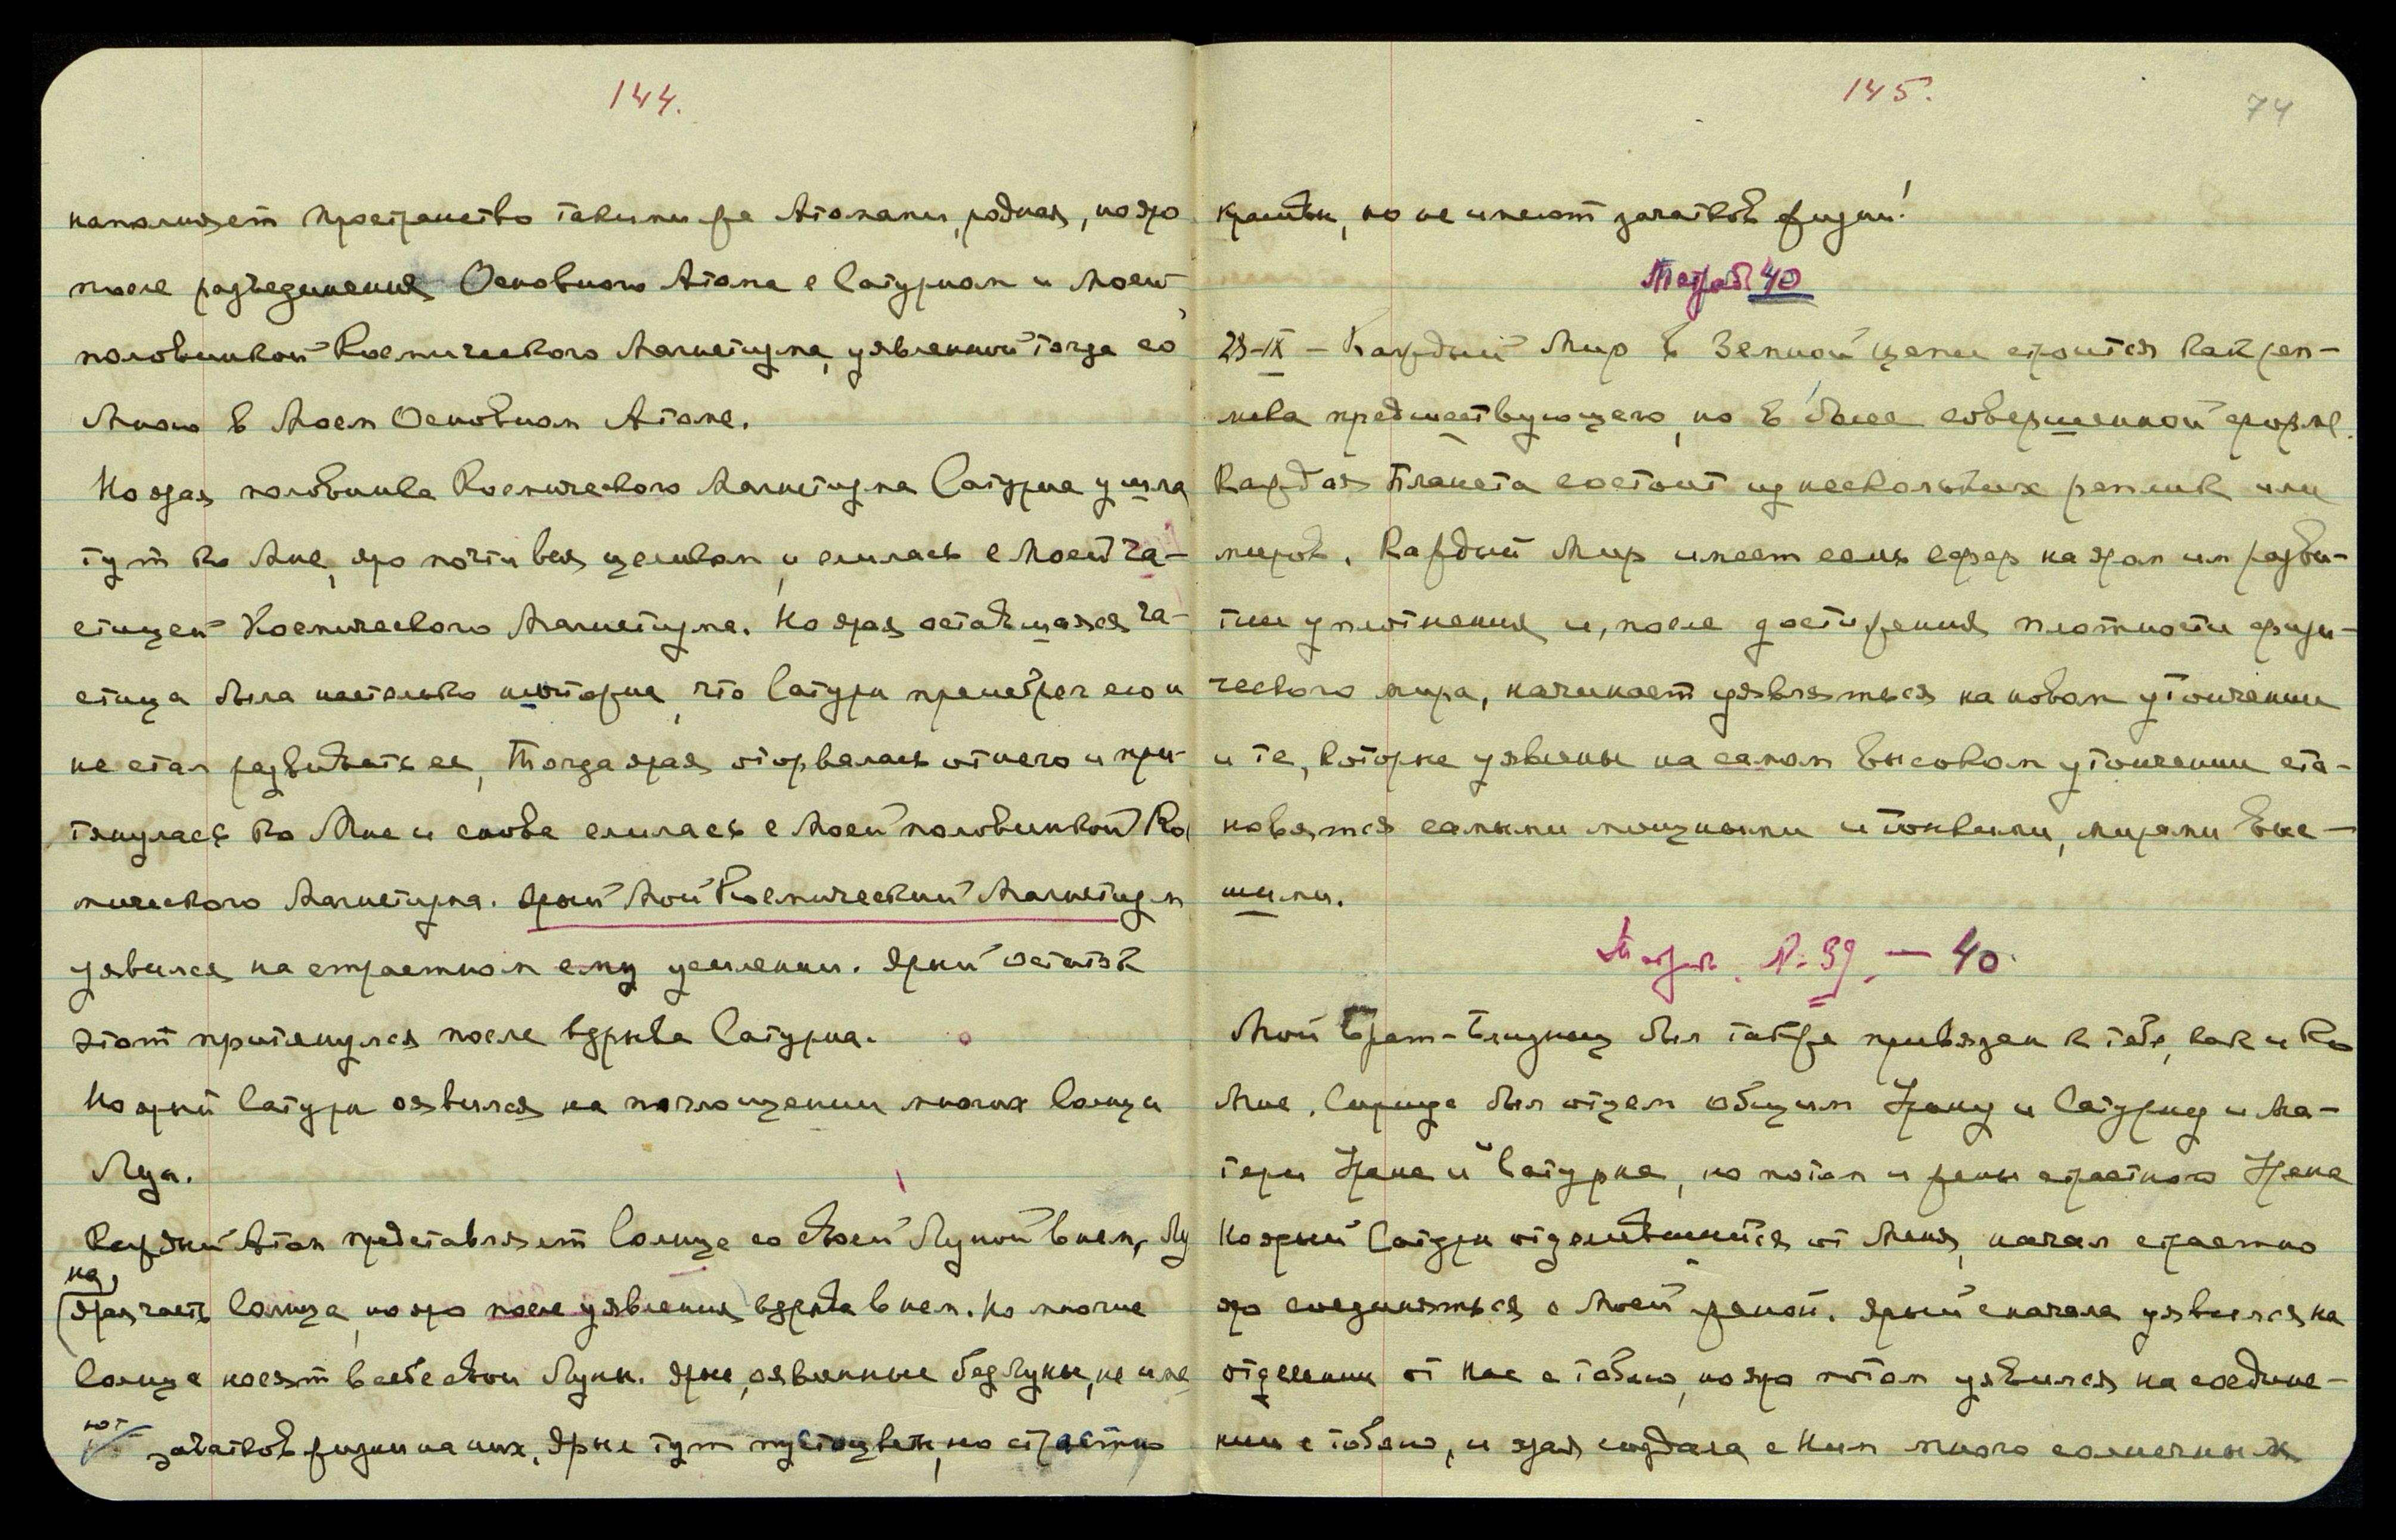 144.
наполняет пространство такими же Атомами, родная, но яро
после разъединения Основного Атома с Сатурном и Моей
половинкой Космического Магнетизма, уявленной тогда со
Мною в Моем Основном Атоме.
Но ярая половинка Космического Магнетизма Сатурна ушла
тут ко Мне, яро почти вся целиком, и слилась с Моей ча-
стицей Космического Магнетизма. Но ярая оставшаяся ча-
стица была настолько ничтожна, что Сатурн пренебрег ею и
не стал развивать ее, Тогда ярая оторвалась от него и при-
тянулась ко Мне и снова слилась с Моей половинкой Кос
мического Магнетизма. Ярый Мой Космический Магнетизм
уявился на страстном ему усилении. Ярый остаток
этот притянулся после взрыва Сатурна.
Но ярый Сатурн оявился на поглощении многих Солнц и
Лун.
Каждый Атом представляет Солнце со своей Луной в нем, Лу
на,
ярая часть Солнца, но яро после уявления взрыва в нем. Но многие
Солнца носят в себе свои Луны. Ярые, оявленные без Луны, не име
ют
зачатков жизни на них. Ярые тут пустоцветы, но страстно
145.
74
красивы, но не имеют зачатков жизни!
Тетрадь 40
28-IX – Каждый Мир в Земной цепи строится как реп-
лика предшествующего, но в более совершенной форме.
Каждая Планета состоит из нескольких реплик или
миров. Каждый Мир имеет семь сфер на яром им разви-
тии уплотнения и, после достижения плотности физи-
ческого мира, начинает уявляться на новом утончении
и те, которые уявлены на самом высоком утончении ста-
новятся самыми мощными и тонкими, мирами выс-
шими.
Тетрадь. № 39. – 40.
Мой Брат-Близнец был также привязан к тебе, как и ко
Мне. Сириус был отцом общим Урану и Сатурну и Ма-
тери Урана и Сатурна, но потом и жены страстного Урана
Но ярый Сатурн отделившийся от Меня, начал страстно
яро соединяться с Моей женой. Ярый сначала уявился на
отделении от Нас с тобою, но яро потом уявился на соедине-
нии с тобою, и ярая создала с Ним много солнечных